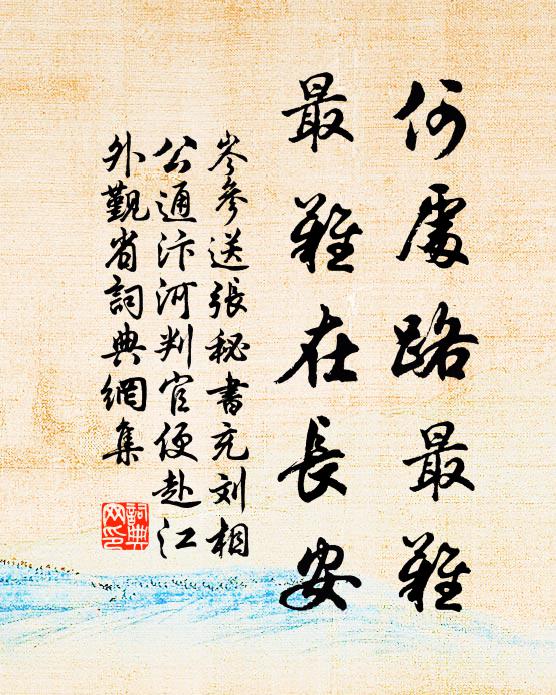 何處路最難
最難在長安
岑參送張秘書充刘相
公通汴河判官便赴江
外觀省詞典網集
詞典
网印